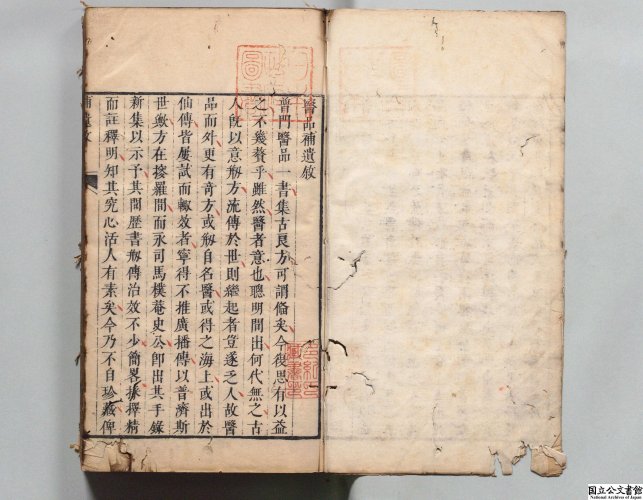 醫品補遺敘
普門醫品一書集古良方可謂備矣今復思有以益
之不幾贅乎雖然醫者意也聰明間出何代無之古
人既以意剏方流傳於世則繼起者豈遂乏人故醫
品而外更有奇方或剏自名醫或得之海上或出於
仙傳皆屢試而輒效者寧得不推廣播傳以普濟斯
世剏方在搜羅間而永司馬樸菴史公卽出其手錄
新集以示予其閒歷書剏傳治效不少簡畧採擇精
而註釋明知其究心活人有素矣今乃不自珍藏俾
國立公文書館
National Archives of Japan